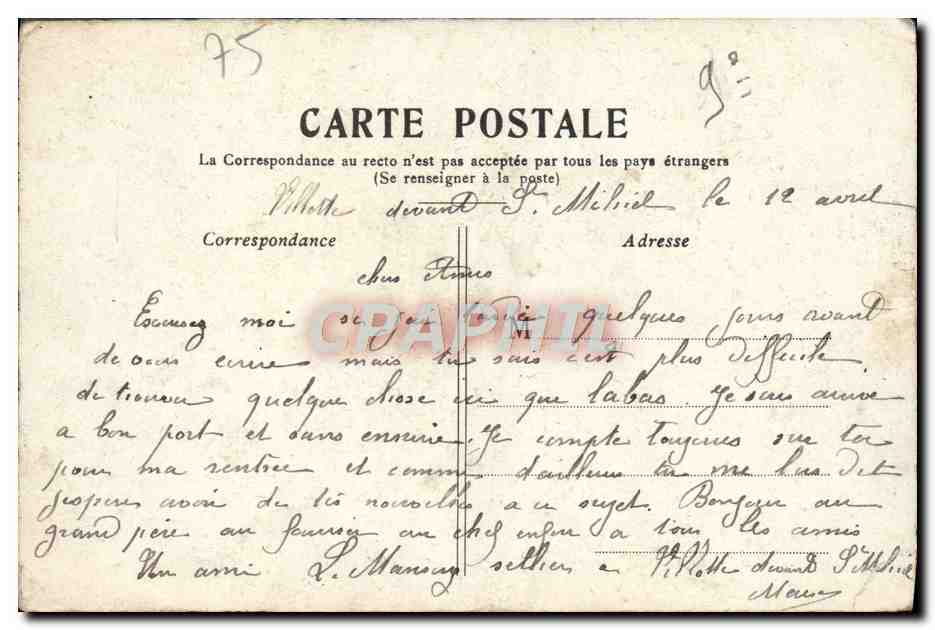 75
CARTE POSTALE
La Correspondance au recto n'est pas acceptée par tous les pays étrangers
(Se renseigner à la poste)
Villotte devant St Mihiel le 12 avril
Correspondance Adresse
cher Amis
CRAPHIL
M
Excusez moi si j'ai tardé quelques jours avant
de vous écrire mais tu sais c'est plus difficile
de trouver quelque chose ici que labas. Je suis arrivé
a bon port et sans ennuie. Je compte toujours sur toi
pour ma rentrée et comme d'ailleurs tu me l'as dit
j'espère avoir de tes nouvelles a ce sujet. Bonjour au
grand père au au chef enfin a tous les amis
Un ami L. Mansuy sellier a Villotte devant St Mihiel
Meuse